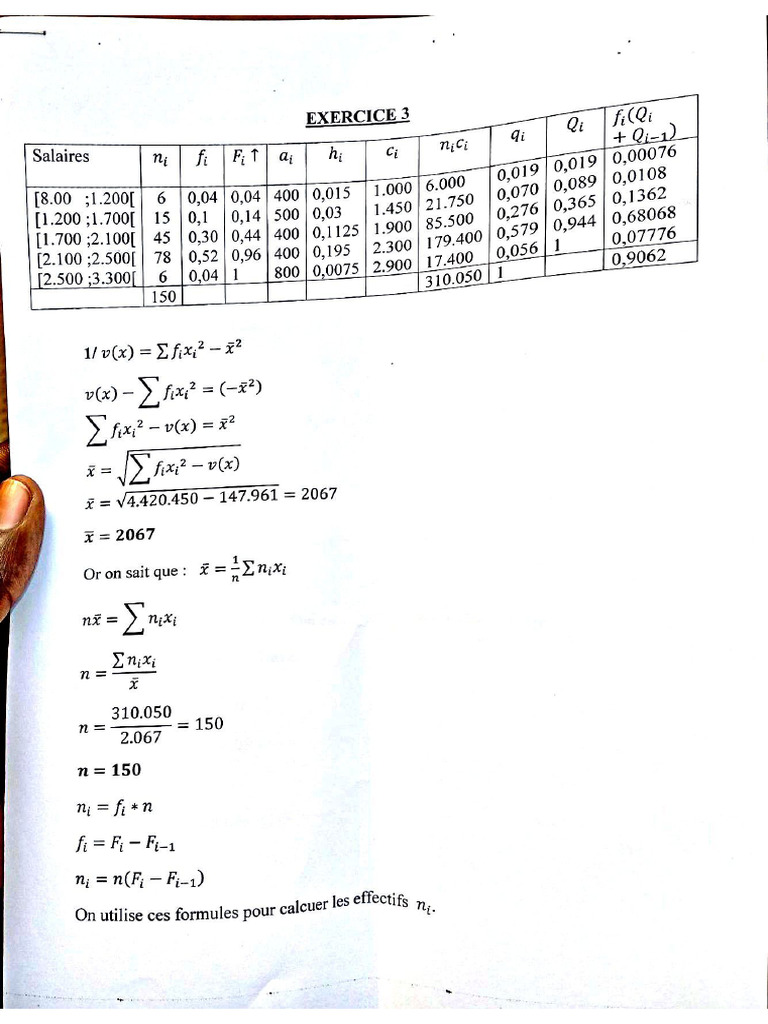 EXERCICE 3
Salaires nᵢ fᵢ Fᵢ ↑ aᵢ hᵢ cᵢ nᵢcᵢ qᵢ Qᵢ fᵢ(Qᵢ + Qᵢ₋₁)
[8.00 ;1.200[ 6 0,04 0,04 400 0,015 1.000 6.000 0,019 0,019 0,00076
[1.200 ;1.700[ 15 0,1 0,14 500 0,03 1.450 21.750 0,070 0,089 0,0108
[1.700 ;2.100[ 45 0,30 0,44 400 0,1125 1.900 85.500 0,276 0,365 0,1362
[2.100 ;2.500[ 78 0,52 0,96 400 0,195 2.300 179.400 0,579 0,944 0,68068
[2.500 ;3.300[ 6 0,04 1 800 0,0075 2.900 17.400 0,056 1 0,07776
150 310.050 1 0,9062
1/ v(x) = Σ fᵢxᵢ² − x̄²
v(x) − ∑ fᵢxᵢ² = (−x̄²)
∑ fᵢxᵢ² − v(x) = x̄²
x̄ = √(∑ fᵢxᵢ² − v(x))
x̄ = √(4.420.450 − 147.961) = 2067
x̄ = 2067
Or on sait que : x̄ = 1/n Σ nᵢxᵢ
nx̄ = ∑ nᵢxᵢ
n = Σ nᵢxᵢ / x̄
n = 310.050 / 2.067 = 150
n = 150
nᵢ = fᵢ * n
fᵢ = Fᵢ − Fᵢ₋₁
nᵢ = n(Fᵢ − Fᵢ₋₁)
On utilise ces formules pour calcuer les effectifs nᵢ.